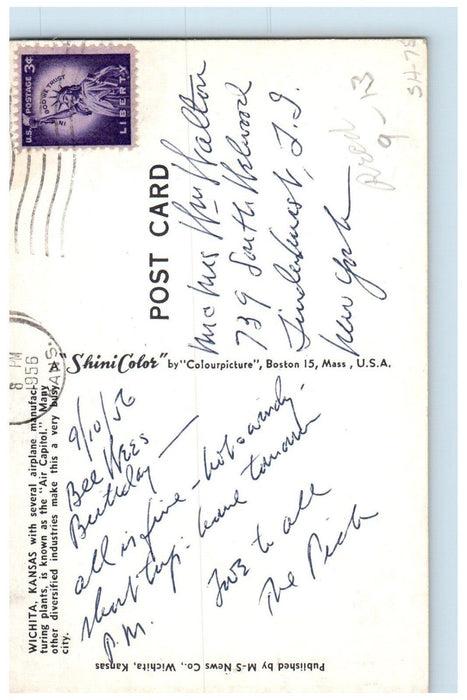 WICHITA, KANSAS with several airplane manufac-
turing plants, is known as the "Air Capitol." Many
other diversified industries make this a very busy
city.
9/10/56
Bee Wees
Birthday —
all is fine - hot & windy.
short trip. leave tomorrow
P.M.
Love to all
The Dick
Published by M-S News Co., Wichita, Kansas
A "ShiniColor" by "Colourpicture", Boston 15, Mass., U.S.A.
POST CARD
U.S. POSTAGE 3¢
IN GOD WE TRUST
LIBERTY
8 PM
1956
Mr & Mrs Wm Walton
739 South Welwood
Lindenhurst, L.I.
New York
Recd
9-13
SH-75